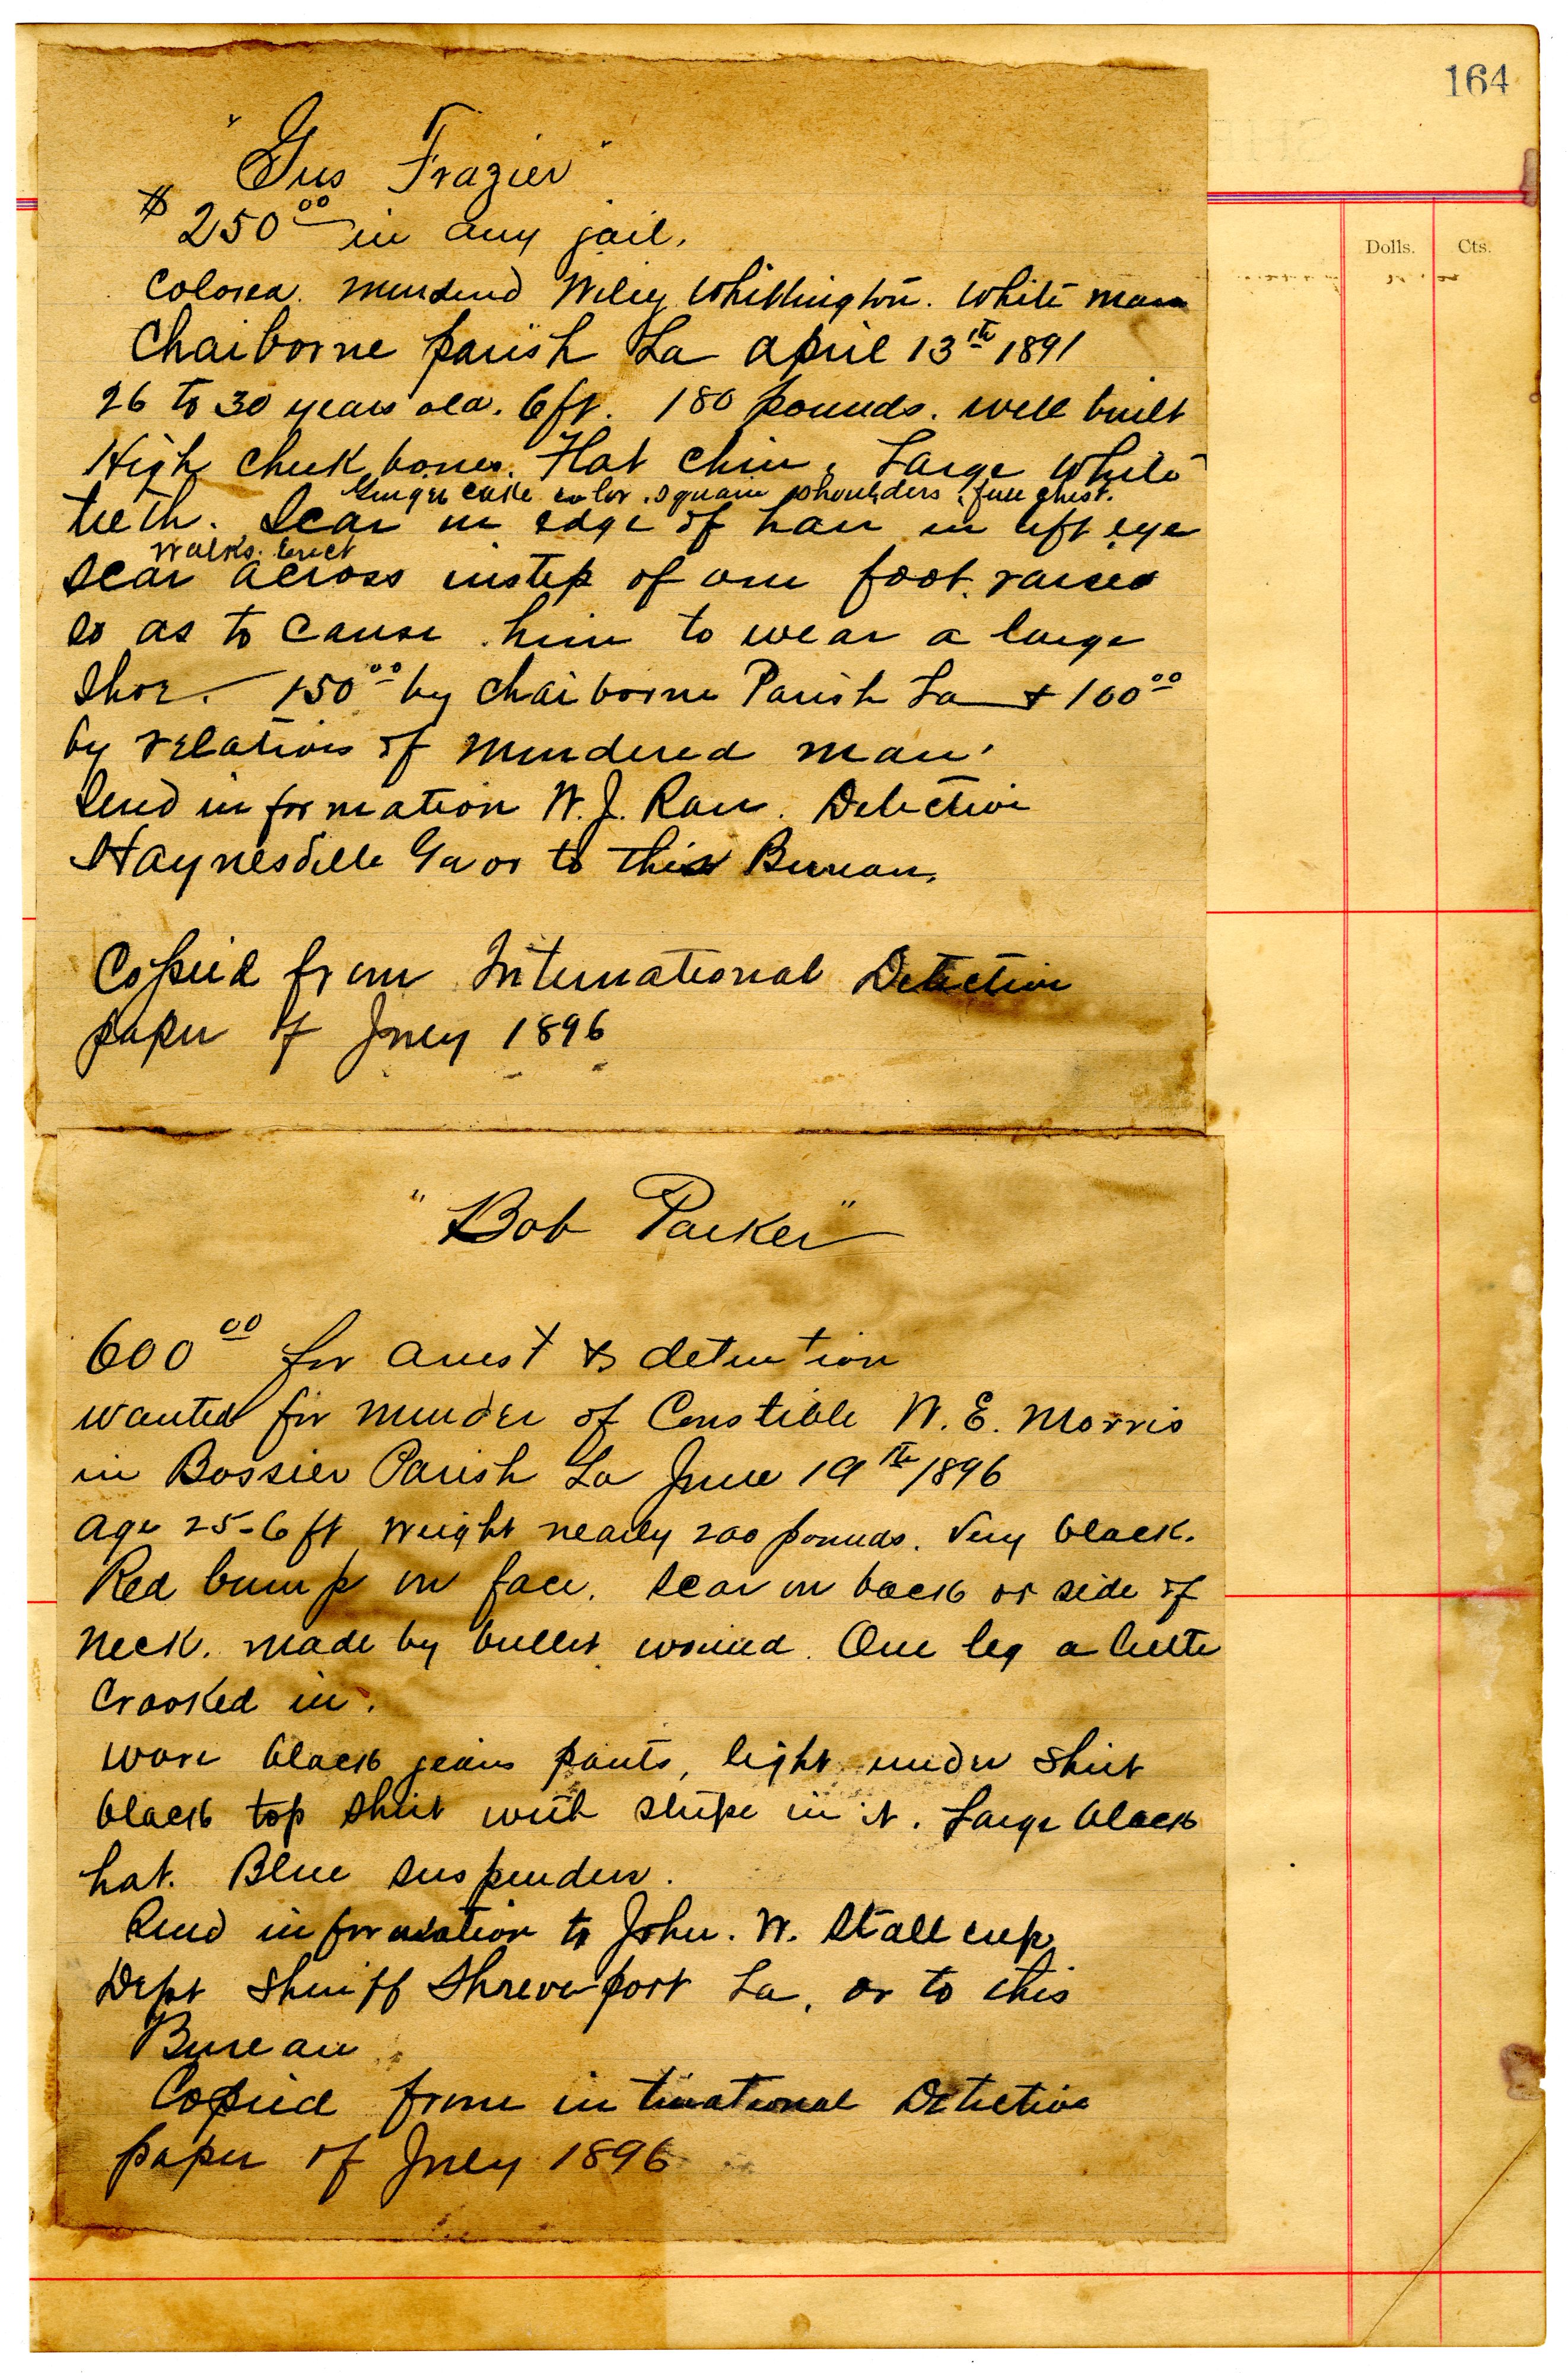 164
Dolls. Cts.
"Gus Frazier"
$250 00 in any jail.
Colored. murdered Wiley Whittington. White man
Chaiborne parish La april 13th 1891
26 to 30 years old. 6 ft. 180 pounds. well built
High cheek bones. Flat chin, Large white
Ginger cake color. square shoulders, full chest.
teeth. Scar in edge of hair in left eye
Walks. Erect
Scar across instep of one foot. raised
so as to cause him to wear a large
Shoe. — 150 00 by Chaiborne Parish La + 100 00
by relatives of murdered man.
Send information W. J. Rau. Detective
Haynesville Ga or to this Bureau.
Copied from International Detective
paper of July 1896
"Bob Parker"
600 00 for arrest & detention
wanted for murder of Constible W. E. Morris
in Bossier Parish La June 19th 1896
age 25 - 6 ft weight nearly 200 pounds. Very black.
Red bump on face. Scar on back or side of
neck. made by bullet wound. One leg a little
Crooked in.
wore black jeans pants, light under shirt
black top shirt with stripe in it. Large black
hat. Blue suspenders.
Send information to John. W. Stallcup
Dept Sheriff Shreveport La, or to this
Bureau
Copied from international Detective
paper of July 1896